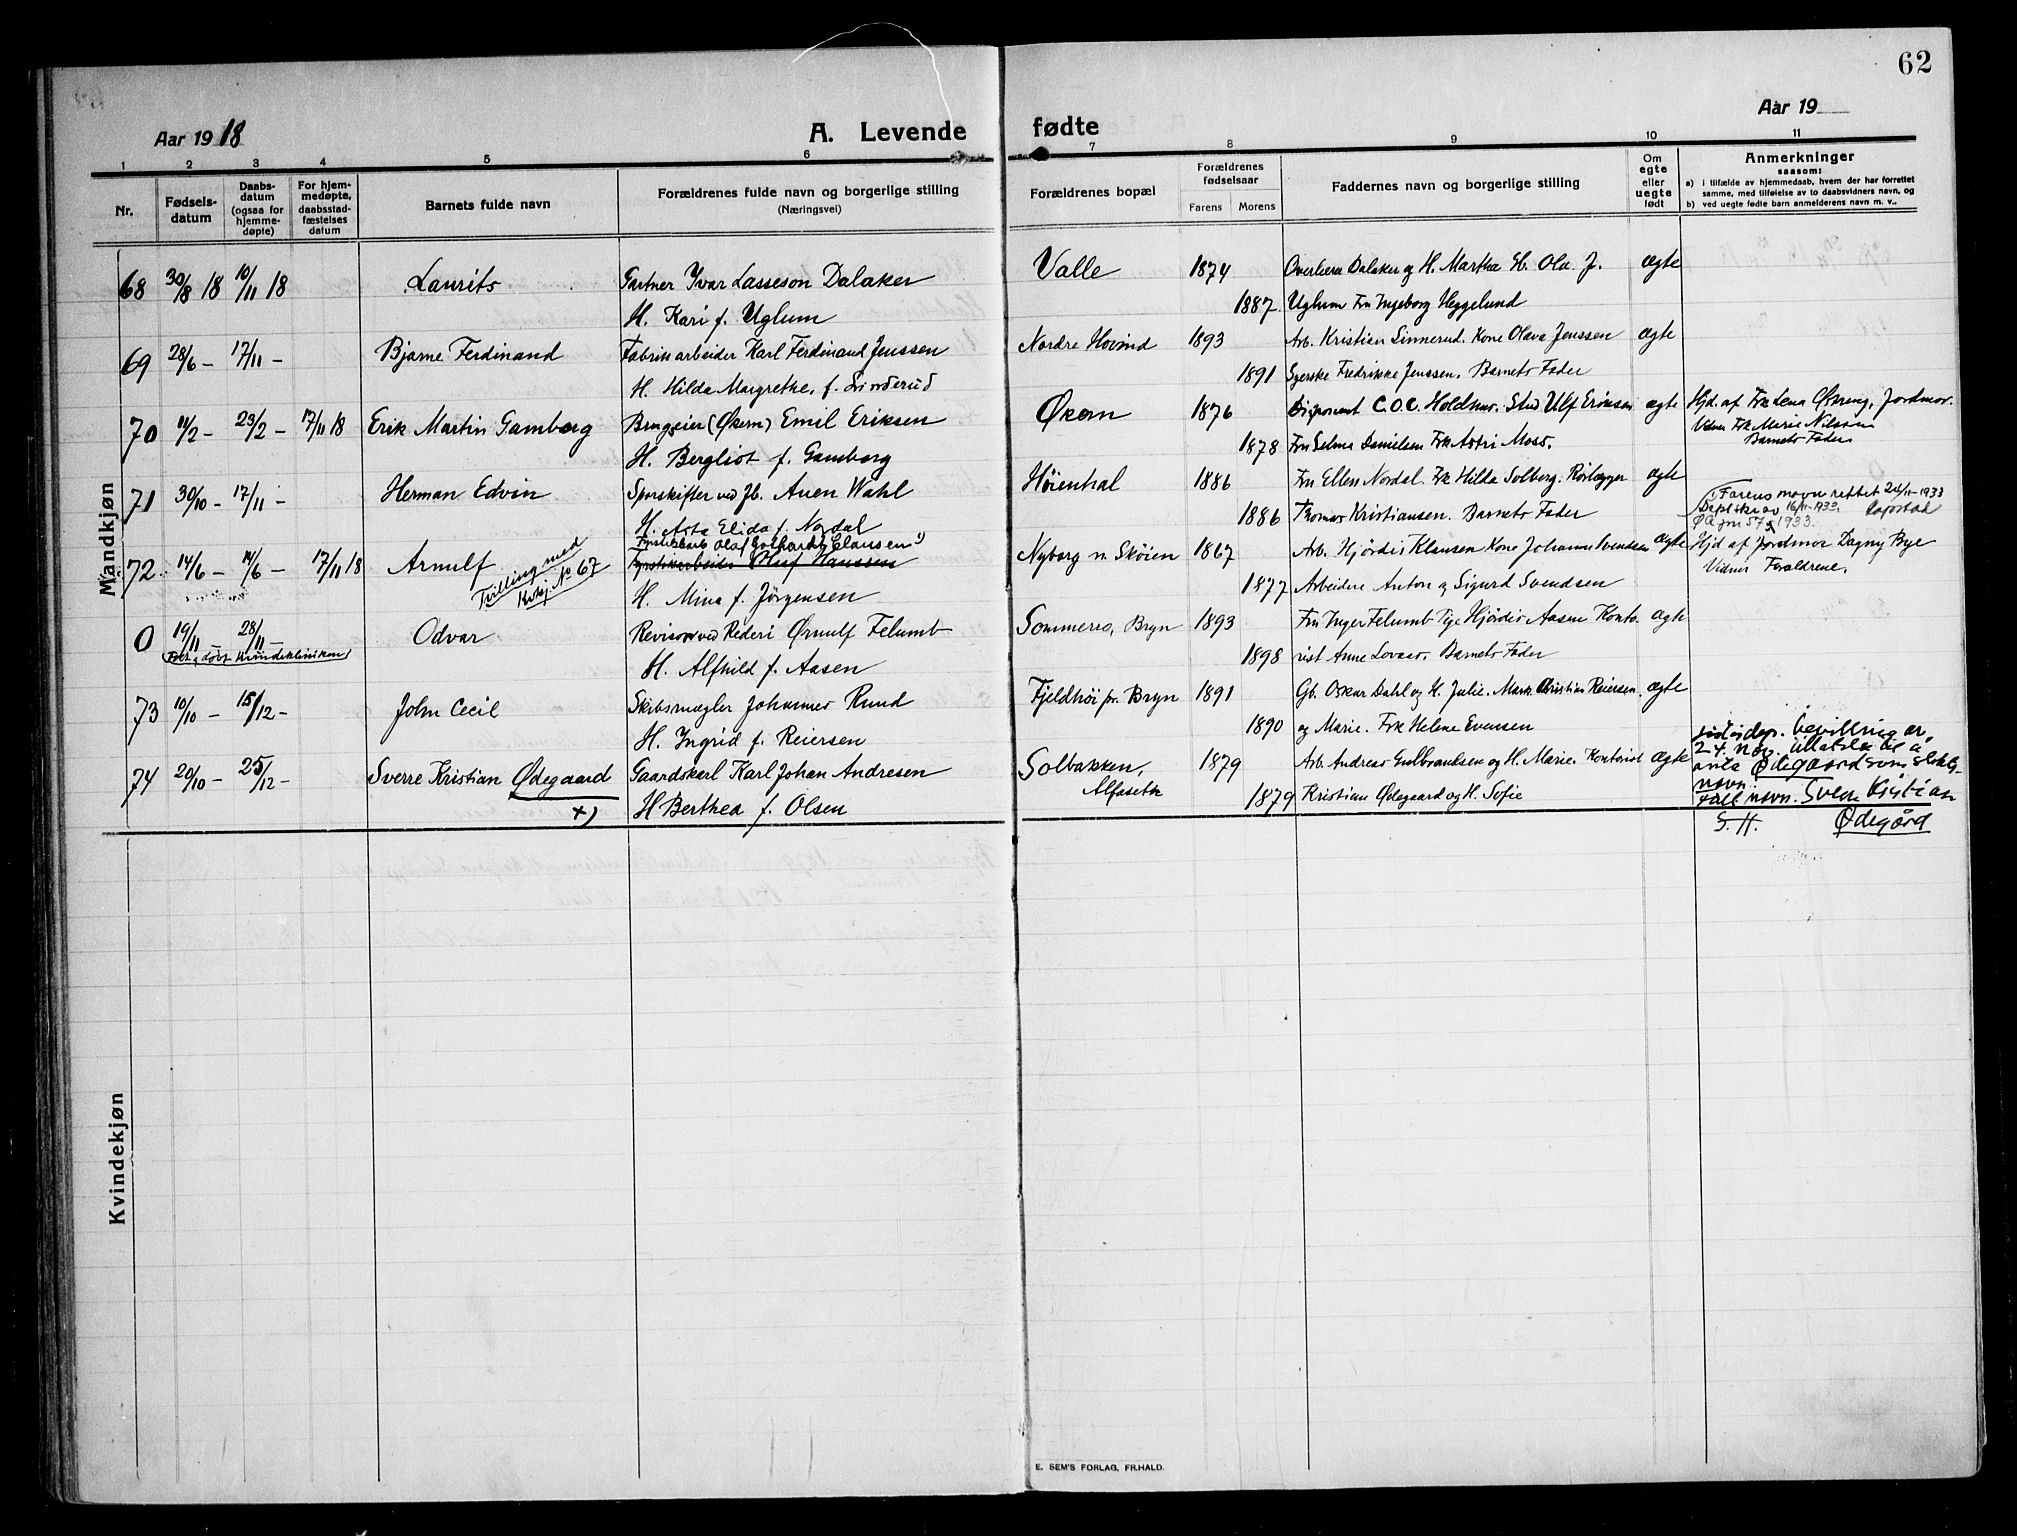 62
Aar 1918
A. Levende
fødte
Aar 19
1 2 3 4 5 6 7 8 9 10 11
Nr.
Fødsels-
datum
Daabs-
datum
(ogsaa for
hjemme-
døpte)
For hjem-
medøpte,
daabsstad-
fæstelses
datum
Barnets fulde navn
Forældrenes fulde navn og borgerlige stilling
(Næringsvei)
Forældrenes bopæl
Forældrenes
fødselsaar
Farens Morens
Faddernes navn og borgerlige stilling
Om
egte
eller
uegte
født
Anmerkninger
saasom:
a) i tilfælde av hjemmedaab, hvem der har forrettet
samme, med tilføielse av to daabsvidners navn, og
b) ved uegte fødte barn anmelderens navn m. v..
Mandkjøn
68 30/8 18 10/11 18 Laurits Gartner Ivar Lasseson Dalaker Valle 1874 Dalaker og H. Martha Ola J. ægte
H. Kari f. Uglum 1887 Uglum Fru Ingeborg Heggelund
69 28/6 - 17/11 - Bjarne Ferdinand Fabrikarbeider Karl Ferdinand Jenssen Nordre Hovind 1893 Arb. Kristian Sinnerud. Kone Olava Jenssen ægte
H. Hilda Margrethe, f. Sinderud 1891 Syerske Fredrikke Jenssen. Barnets Fader
70 11/2 - 23/2 - 17/11 18 Erik Martin Gamborg Brugseier (Økern) Emil Eriksen Økern 1876 Disponent C.O.C. Holdhus. Stud Ulf Eriksen ægte Hjd. af Frk Lena Økreng, Jordmor.
H. Bergliot f. Gamborg 1878 Fru Selma Danielsen Frk Astri Moss. Vidner Frk Marie Nilssen
Barnets Fader
71 30/10 - 17/11 - Herman Edvin Sporskifter ved Jb. Auen Wahl Høienhal 1886 Fru Ellen Nordal. Frk Hilda Solberg. Rørlægger ægte
H. Asta Elida f. Nordal 1886 Thomas Kristiansen. Barnets Fader
1) Farens navn rettet 24/11-1933
Dept. skr av 16/11-1933.
1933.
Fyrstikarb Olaf Gotharby Clausen 1)
72 14/6 - 14/6 - 17/11 18 Arnulf Fyrstikarbeider Oluf Hanssen Nyborg n Skøien 1867 Arb. Hjørdis Klausen Kone Johanne Svendsen ægte Hjd af Jordmor Dagny Bye
Tvilling med
Kvkj. No 67
H. Mina f. Jørgensen 1877 Arbeidere Anton og Sigurd Svendsen Vidner Forældrene.
0 19/11 28/11 - Odvar Revisor ved Rederi Ørnulf Felumb Sommerro, Bryn 1893 Fru Inger Felumb Pige Hjørdis Aasen Konto- ægte
Født og døbt Kvindeklinikken
H. Alfhild f. Aasen 1898 rist Anne Lovaas. Barnets Fader
73 10/10 - 15/12 - John Cecil Skibsmægler Johannes Ruud Fjeldhøi pr. Bryn 1891 Gb. Oskar Dahl og H. Julie. Christian Reiersen ægte
H. Ingrid f. Reiersen 1890 og Marie. Frk Helene Evensen
74 20/10 - 25/12 - Sverre Kristian Ødegaard Gaardskarl Karl Johan Andresen Solbakken, 1879 Arb. Andreas Gulbrandsen og H. Marie. Kontorist ægte
x) H Berthea f. Olsen Alfaseth 1879 Kristian Ødegaard og H. Sofie
bevilling av
24. nov. tillatelse til å
anta Ødegaard som slekts-
navn.
Fullt navn. Sverre Kristian
S. H. Ødegård
Kvindekjøn
E. SEM'S FORLAG, FR.HALD.